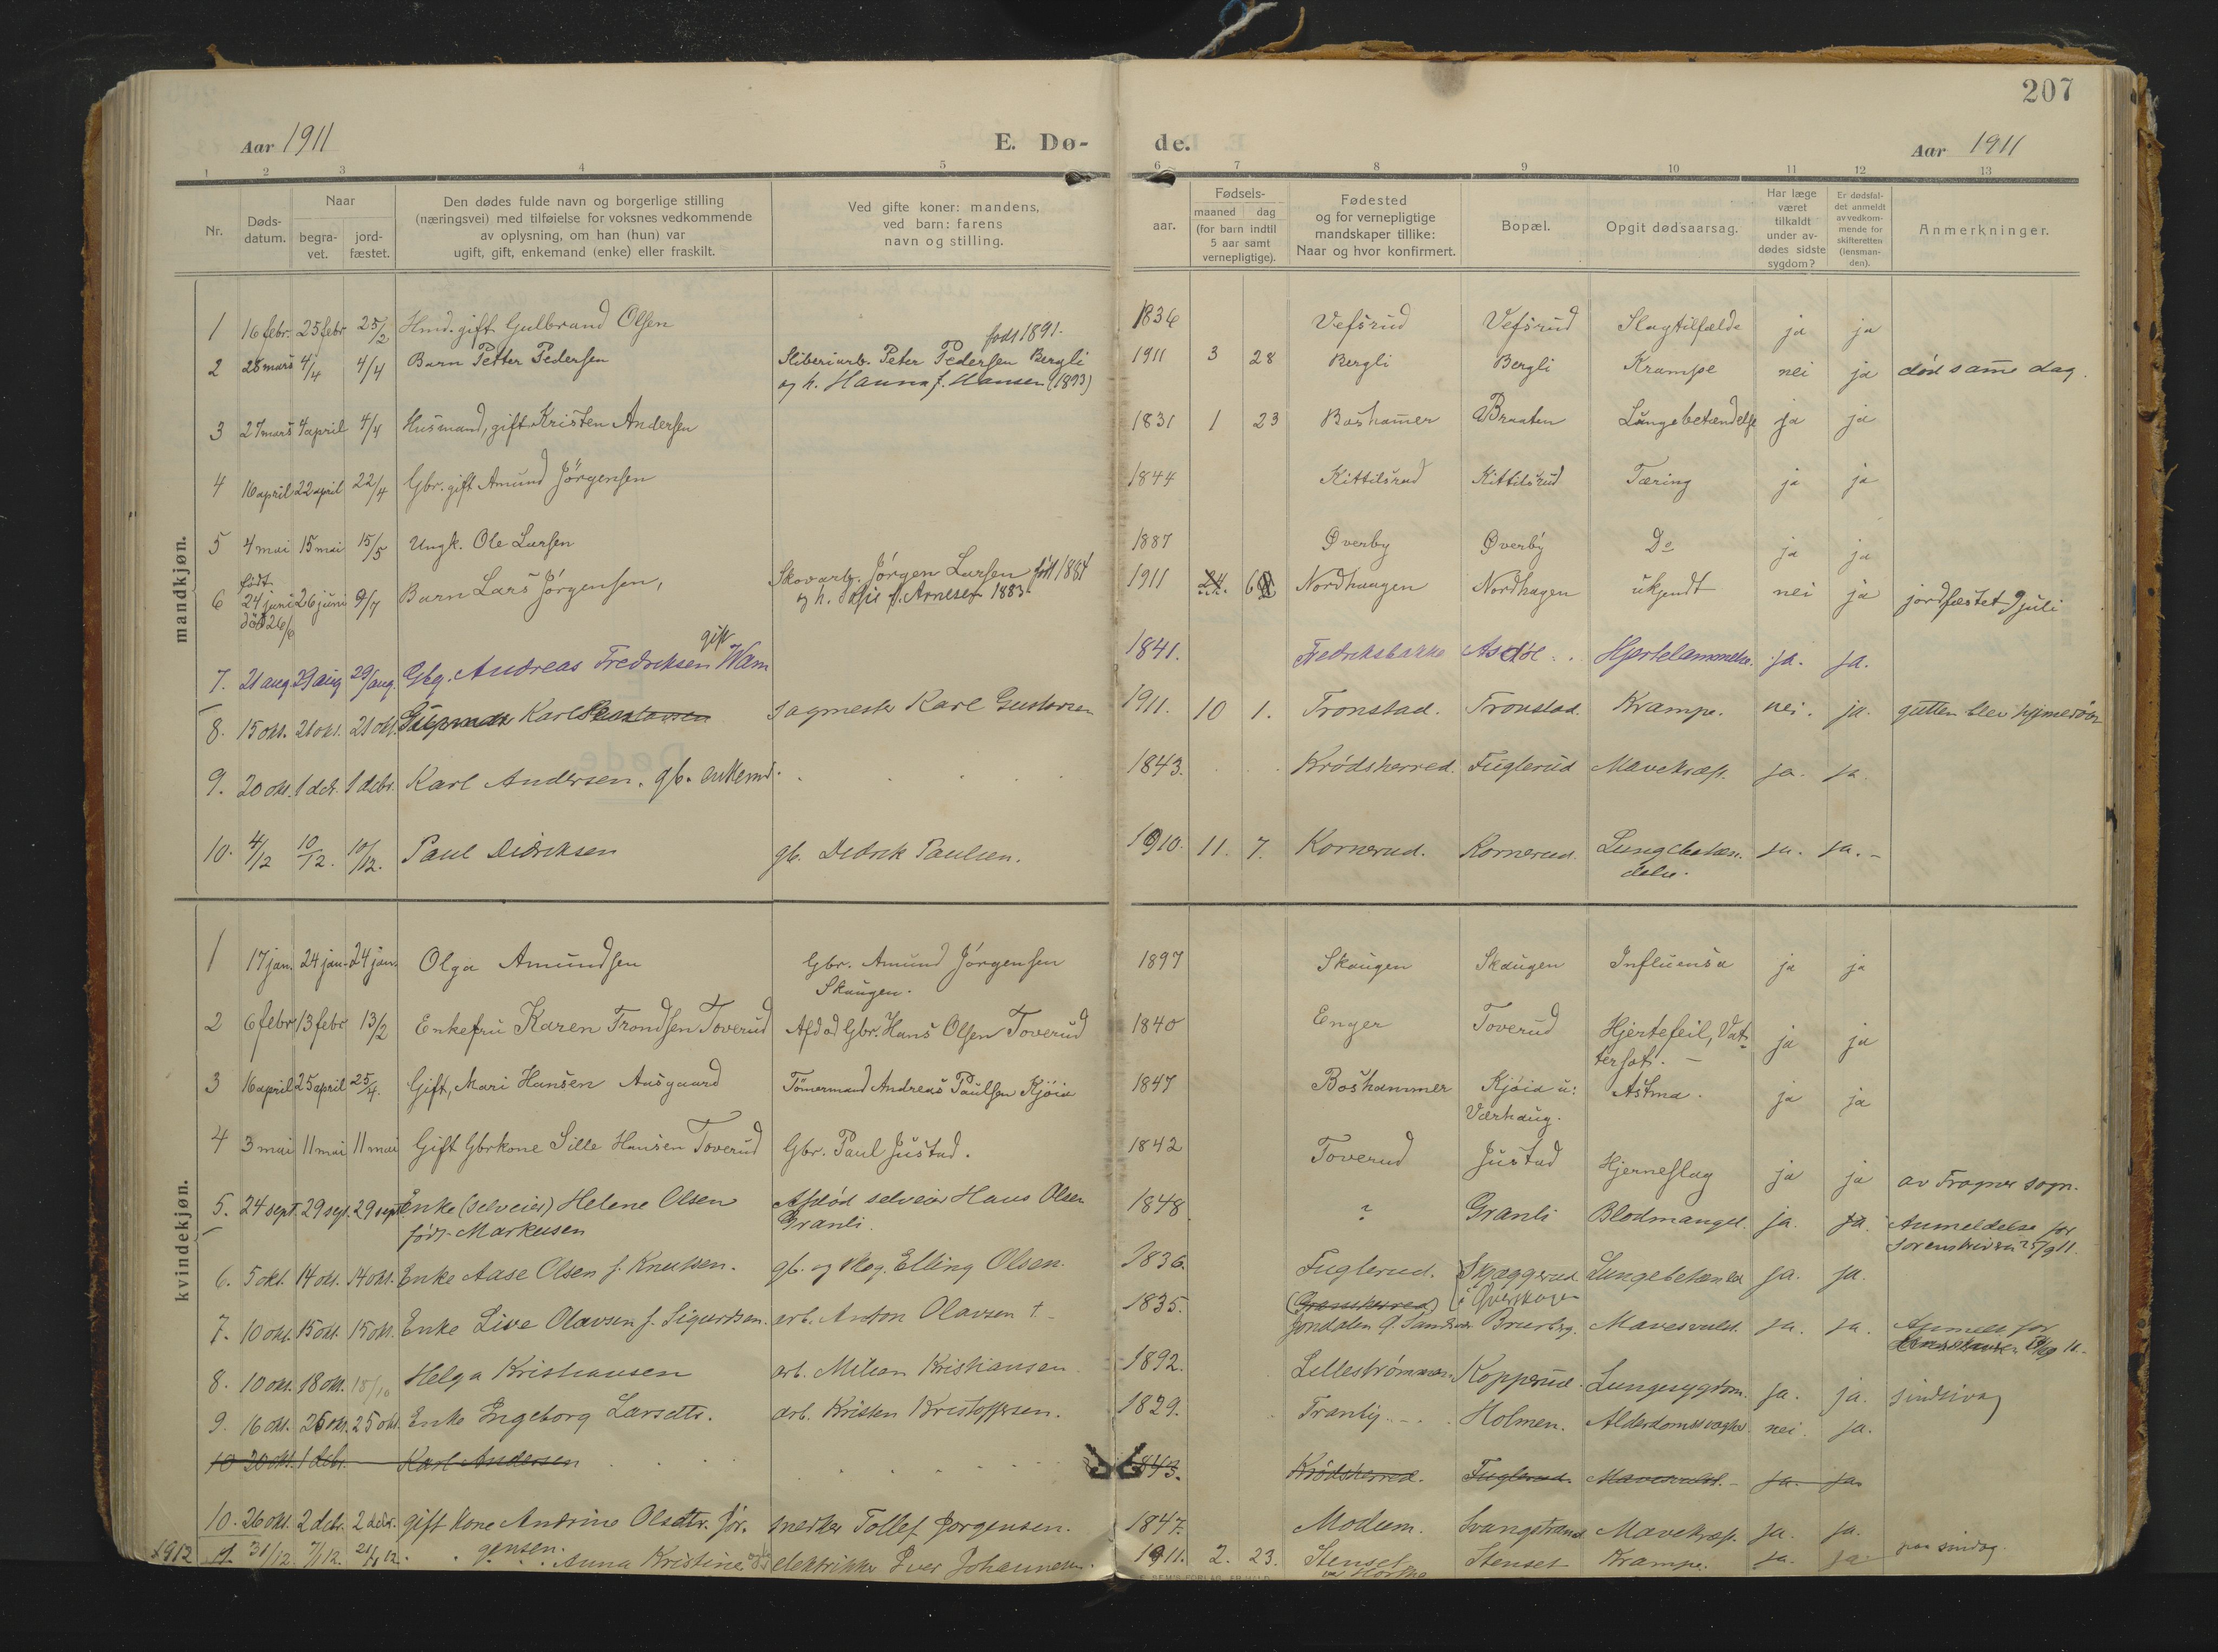 207
Aar 1911 E. Dø- de. Aar 1911
1 2 3 4 5 6 7 8 9 10 11 12 13
Nr. Døds-datum. Naar begra-vet. jord-fæstet. Den dødes fulde navn og borgerlige stilling (næringsvei) med tilføielse for voksnes vedkommende av oplysning, om han (hun) var ugift, gift, enkemand (enke) eller fraskilt. Ved gifte koner: mandens, ved barn: farens navn og stilling. aar. Fødsels- maaned dag (for barn indtil 5 aar samt vernepligtige). Fødested og for vernepligtige mandskaper tillike: Naar og hvor konfirmert. Bopæl. Opgit dødsaarsag. Har læge været tilkaldt under av-dødes sidste sygdom? Er dødsfal-det anmeldt av vedkom-mende for skifteretten (lensman-den). Anmerkninger.
mandkjøn.
1 16 febr. 25 febr 25/2 Hmd. gift Gulbrand Olsen 1836 Vefsrud Vefsrud Slagtilfælde ja ja
født 1891.
2 28 mars 4/4 4/4 Barn Petter Pedersen Sliberiarb. Peter Pedersen Bergli 1911 3 28 Bergli Bergli Krampe nei ja død samme dag.
og h. Hanna f. Hansen (1893)
3 27 mars 4 april 4/4 Husmand, gift Kristen Andersen 1831 1 23 Boshamer Braaten Lungebetændelse ja ja
4 16 april 22 april 22/4 Gbr. gift Amund Jörgensen 1844 Kittilsrud Kittilsrud Tæring ja ja
5 4 mai 15 mai 15/5 Ungk. Ole Larsen 1887 Øverby Øverby Do ja ja
født
6 24 juni 26 juni 9/7 Barn Lars Jörgensen, Skovarb. Jörgen Larsen født 1884 1911 24. 6 Nordhaugen Nordhagen ukjendt nei ja jordfæstet 9 juli
død 26/6 og h. Sofie f. Arnesen 1883.
gift
7. 21 aug 29 aug 29/aug. Gbg. Andreas Fredriksen Wam 1841. Fredriksbakke Hjertelammelse. ja. ja.
8. 15 okt. 21 okt. 21 okt. Karl Gustavsen sagmester Karl Gustavsen 1911. 10 1. Tronstad. Tronstad. Krampe. nei. ja. gutten blev hjemedøbt
9. 20 okt. 1 dcb. 1 dcbr. Karl Andersen. gb. enkemd. 1843. Krødsherred. Fuglerud Mavekræft. ja. ja.
10. 4/12 10/12. 10/12. Paul Didriksen gb. Didrik Paulsen. 1910. 11. 7. Kornerud. Kornerud. Lungebetæn- ja. ja.
delse.
kvindekjøn.
1 17 jan. 24 jan. 24 jan. Olga Amundsen Gbr. Amund Jörgensen 1897 Skaugen Skaugen Influensa ja ja
Skaugen.
2 6 febr 13 febr 13/2 Enkefru Karen Trondsen Toverud Afdød Gbr. Hans Olsen Toverud 1840 Enger Toverud Hjertefeil, Vat- ja ja
tersot.
3 16 april 25 april 25/4. Gift, Mari Hansen Aasgaard Tömermand Andreas Paulsen Kjöia 1847 Boshammer Kjöia u: Astma. ja ja
Værhaug.
4 3 mai 11 mai 11 mai Gift Gbrkone Sille Hansen Toverud Gbr. Paul Justad. 1842 Toverud Justad Hjerneslag ja ja
av Frogner sogn.
5. 24 sept. 29 sept. 29 sept. Enke (selveier) Helene Olsen Afdød selveier Hans Olsen 1848 ? Granli Blodmangel. ja. ja. Anmeldelse for
født Markusen Granli. sorenskriveren 25/9 11.
6. 5 okt. 14 okt. 14 okt. Enke Aase Olsen f. Knutsen. gb. og skog. Elling Olsen. 1836. Fuglerud. Skjæggerud Lungebetændel ja. ja.
7. 10 okt. 15 okt. 15 okt. Enke Live Olavsen f. Sigurdsen. arb. Anton Olavsen † 1835. (Gransherred) Jondalen Bruerbrg. Mavesvulst. ja. ja. Anmeldt for
8. 10 okt. 18 okt. 18/10 Helga Kristiansen arb. Milian Kristiansen. 1892. Lillestrømmen. Kopperud. Lungesygdom. ja. ja. sindsivag
9. 16 okt. 25 okt. 25 okt. Enke Ingeborg Larsdtr. arb. Kristen Kristoffersen. 1829. Tranby Holmen. Alderdomssvaghet nei. ja.
10 20 okt. 1 dcbr. Karl Andersen 1843. Krødsherred. Fuglerud. Mavesvulst. ja. ja.
10. 26 okt. 2 dcbr. 2 dcbr. gift kone Andrine Olsdtr. Jør- snedker Tollef Jorgensen. 1847. Modum. Svangstrand Mavekræft. ja. ja.
gensen.
1912 11. 31/12 7/1 12. 21/1 12. Anna Kristine elektrikker Iver Johannesen. 1911. 2. 23. Stenset Stenset Krampe. ja. ja